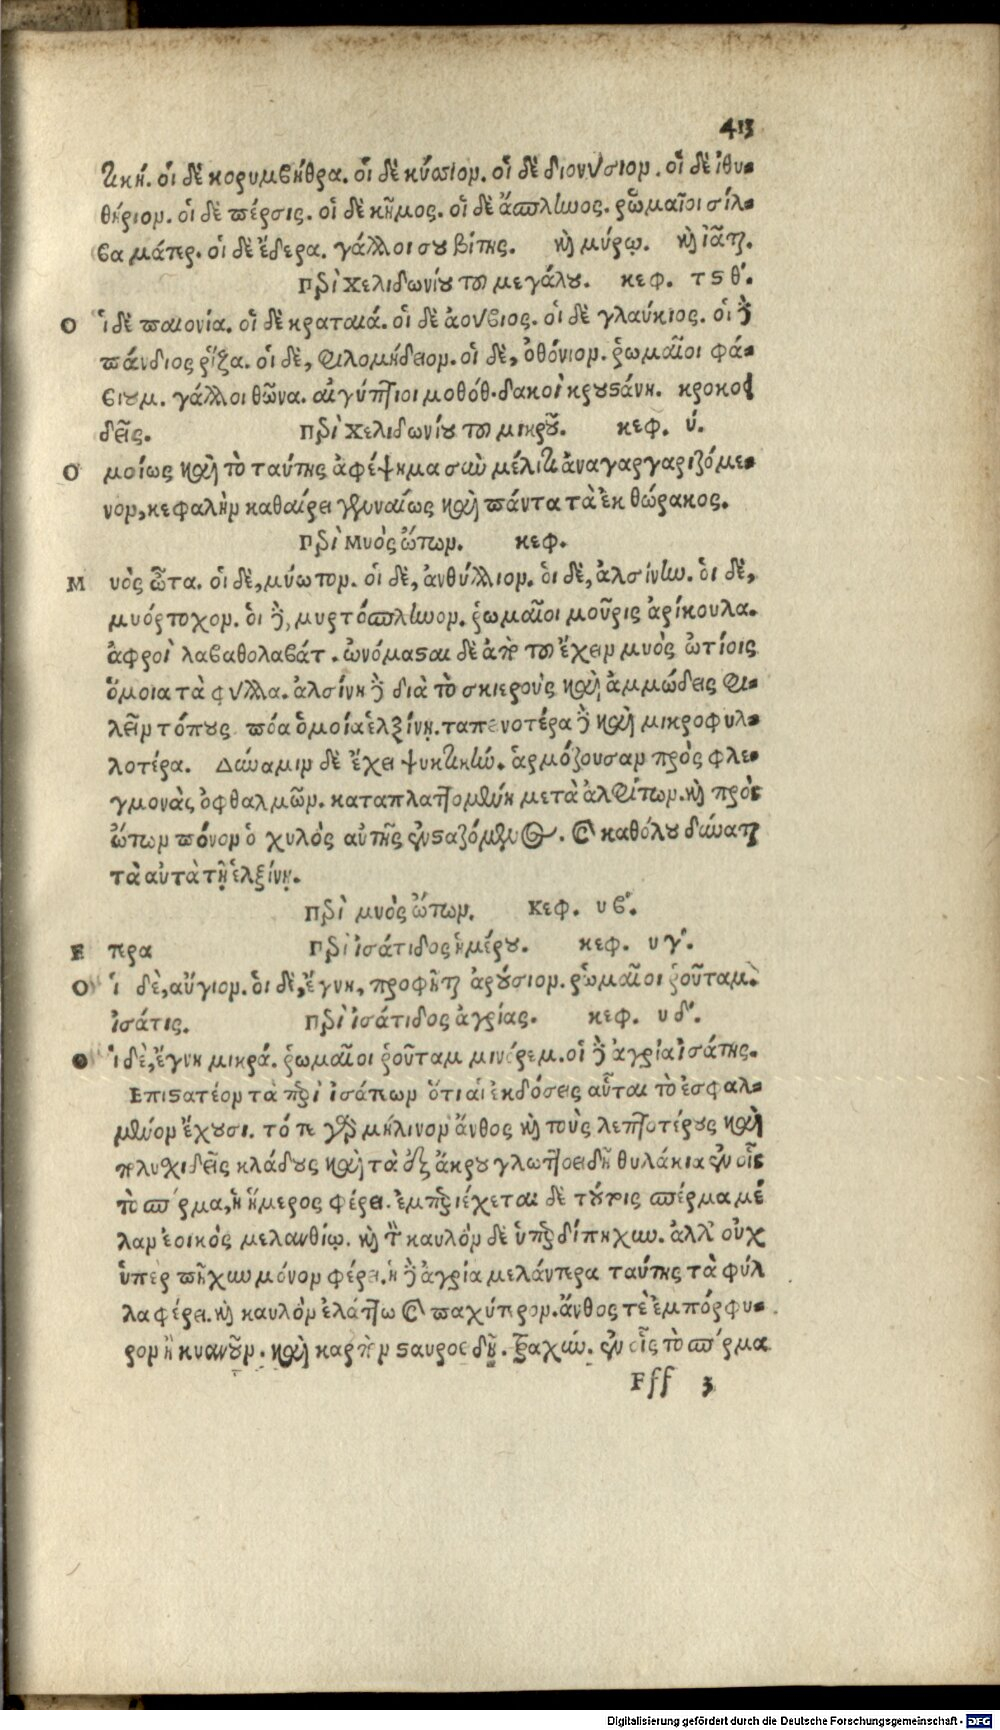 413
τικὴ. οἱ δὲ κορυμβήθρα. οἱ δὲ κύσσιον. οἱ δὲ διονύσιον. οἱ δὲ ἰθυ-
θήριον. οἱ δὲ πέρσις. οἱ δὲ κῆμος. οἱ δὲ ἄσπληνος. ῥωμαῖοι σίλ-
βα μάτερ. οἱ δὲ ἔδερα. γάλλοι σουβίτης. καὶ μύρῳ. καὶ ἰᾶται.
Περὶ χελιδονίου τοῦ μεγάλου. κεφ. τϟθʹ.
Οἱ δὲ παιονία. οἱ δὲ κραταιά. οἱ δὲ ἀούβιος. οἱ δὲ γλαύκιος. οἱ δὲ
πάνδιος ῥίζα. οἱ δὲ, φιλομήδειον. οἱ δὲ, ὀθόνιον. ῥωμαῖοι φά-
βιουμ. γάλλοι θῶνα. αἰγύπτιοι μοθόθ. δακοὶ κρουστάνη. κροκο
δεῖς. Περὶ χελιδωνίου τοῦ μικροῦ. κεφ. ύ.
Ομοίως καὶ τὸ ταύτης ἀφέψημα σὺν μέλιτι ἀναγαργαριζόμε-
νον, κεφαλὴν καθαίρει γενναίως καὶ πάντα τὰ ἐκ θώρακος.
Περὶ Μυὸς ὤτων. κεφ.
Μυὸς ὦτα. οἱ δὲ, μύωτον. οἱ δὲ, ἀνθύλλιον. οἱ δὲ, ἀλσίνην. οἱ δὲ,
μυόρτοχον. οἱ δὲ, μυρτόσπληνον. ῥωμαῖοι μοῦρις ἀρίκουλα.
ἀφροὶ λαβαθολαβάτ. ὠνόμασται δὲ ἀπὸ τοῦ ἔχειν μυὸς ὠτίοις
ὅμοια τὰ φύλλα. ἀλσίνη δὲ διὰ τὸ σκιεροὺς καὶ ἀμμώδεις φι-
λεῖν τόπους πόα ὁμοία ἑλξίνῃ. ταπεινοτέρα δὲ καὶ μικροφυλ-
λοτέρα. Δύναμιν δὲ ἔχει ψυκτικὴν. ἁρμόζουσαν πρὸς φλε-
γμονὰς ὀφθαλμῶν. καταπλαττομένη μετὰ ἀλφίτων. καὶ πρὸς
ὤτων πόνον ὁ χυλὸς αὐτῆς ἐνσταζόμενος. καὶ καθόλου δύναται
τὰ αὐτὰ τῇ ἑλξίνῃ.
Περὶ μυὸς ὤτων. Κεφ. υβʹ.
Ετερα Περὶ ἰσάτιδος ἡμέρου. κεφ. υγʹ.
Οἱ δὲ, αὔγιον. οἱ δὲ, ἔγνη, προφῆται ἀρούσιον. ῥωμαῖοι ῥοῦταμ.
ἰσάτις. Περὶ ἰσάτιδος ἀγρίας. κεφ. υδʹ.
Οἱ δὲ, ἔγνη μικρά. ῥωμαῖοι ῥοῦταμ μινόρεμ. οἱ δὲ ἀγρία ἰσάτης.
Επιστατέον τὰ περὶ ἰσάτιων ὅτι αἱ ἐκδόσεις αὗται τὸ ἐσφαλ-
μένον ἔχουσι. τό τε γὰρ μήλινον ἄνθος καὶ τοὺς λεπτοτέρους καὶ
πλυχιδεῖς κλάδους καὶ τὰ ἐξ ἄκρου γλωττοειδῆ θυλάκια ἐν οἷς
τὸ σπέρμα, ἡ ἥμερος φέρει. ἐμπεριέχεται δὲ τούτοις σπέρμα μέ
λαν ἐοικὸς μελανθίῳ. καὶ τὸν καυλὸν δὲ ὑπὲρ δίπηχυν. ἀλλʼ οὐχ
ὑπὲρ πῆχυν μόνον φέρει. ἡ δὲ ἀγρία μελάντερα ταύτης τὰ φύλ
λα φέρει. καὶ καυλὸν ἐλάττω καὶ παχύτερον. ἄνθος τὲ ἐμπόρφυ-
ρον ἢ κυανοῦν. καὶ καρπὸν σταυροειδῆ. τραχὺν. ἐν οἷς τὸ σπέρμα
Fff 3
Digitalisierung gefördert durch die Deutsche Forschungsgemeinschaft - DFG